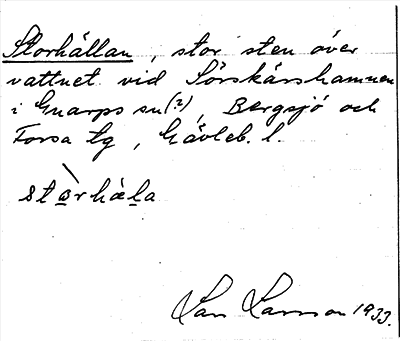 Storhällan, stor sten över
vattnet vid Sörskärshamnen
i Gnarps sn(?), Bergsjö och
Forsa tg, Gävleb. l.
stɷrhäla
Lars Larsson 1933.